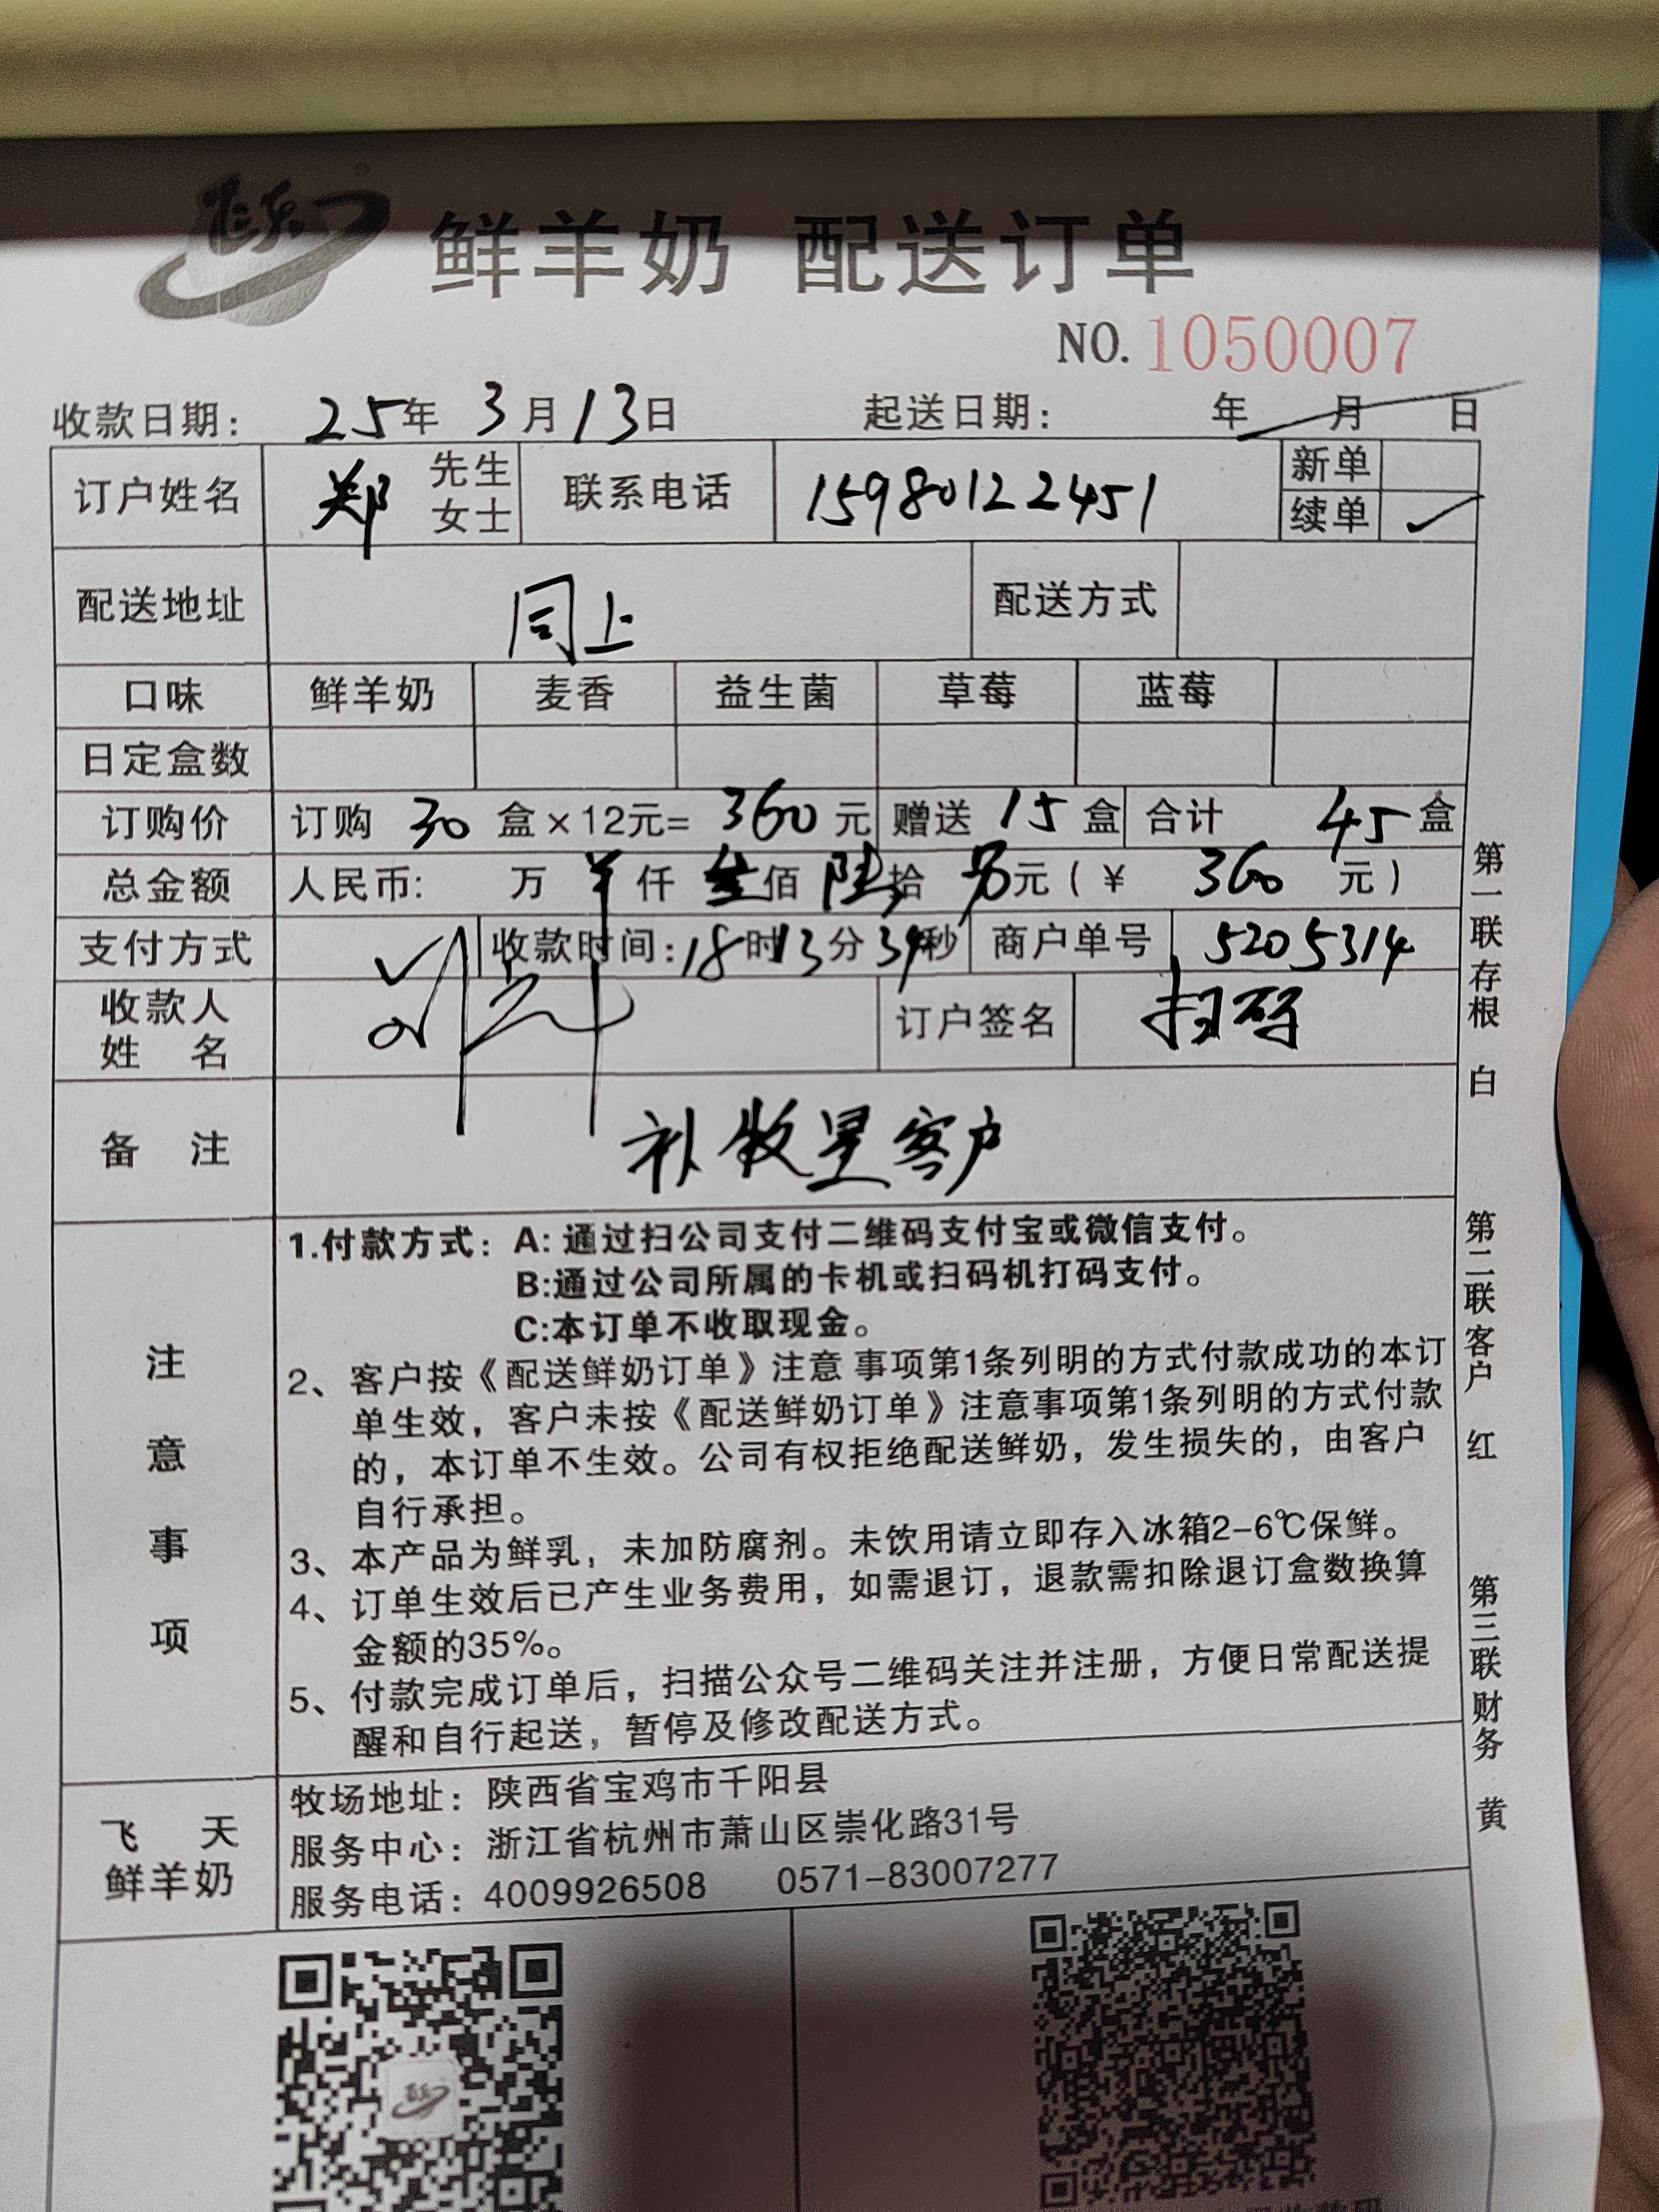 飞天
鲜羊奶 配送订单
NO.1050007
收款日期: 25年 3月13日 起送日期: 年 月 日
订户姓名 郑 先生 女士 联系电话 15980122451 新单 续单 ✓
配送地址 同上 配送方式
口味 鲜羊奶 麦香 益生菌 草莓 蓝莓
日定盒数
订购价 订购 30 盒×12元= 360 元 赠送 15 盒 合计 45 盒
总金额 人民币: 万 仟 叁佰 陆拾 元(¥ 360 元)
支付方式 ✓ 收款时间:18时13分39秒 商户单号 5205314
收款人姓名 订户签名 扫码
备 注 补牧星客户
注意事项
1.付款方式: A:通过扫公司支付二维码支付宝或微信支付。
B:通过公司所属的卡机或扫码机打码支付。
C:本订单不收取现金。
2、客户按《配送鲜奶订单》注意 事项第1条列明的方式付款成功的本订
单生效,客户未按《配送鲜奶订单》注意事项第1条列明的方式付款
的,本订单不生效。公司有权拒绝配送鲜奶,发生损失的,由客户
自行承担。
3、本产品为鲜乳,未加防腐剂。未饮用请立即存入冰箱2-6℃保鲜。
4、订单生效后已产生业务费用,如需退订,退款需扣除退订盒数换算
金额的35%。
5、付款完成订单后,扫描公众号二维码关注并注册,方便日常配送提
醒和自行起送,暂停及修改配送方式。
飞天
鲜羊奶
牧场地址:陕西省宝鸡市千阳县
服务中心:浙江省杭州市萧山区崇化路31号
服务电话:4009926508 0571-83007277
第一联存根 白
第二联客户 红
第三联财务 黄